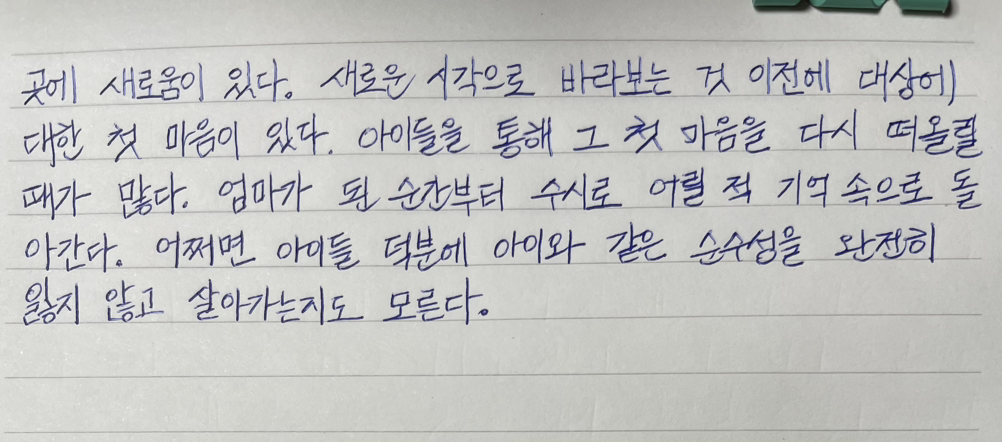 곳에 새로움이 있다. 새로운 시각으로 바라보는 것 이전에 대상에
대한 첫 마음이 있다. 아이들을 통해 그 첫 마음을 다시 떠올릴
때가 많다. 엄마가 된 순간부터 수시로 어릴 적 기억 속으로 돌
아간다. 어쩌면 아이들 덕분에 아이와 같은 순수성을 완전히
잃지 않고 살아가는지도 모른다.